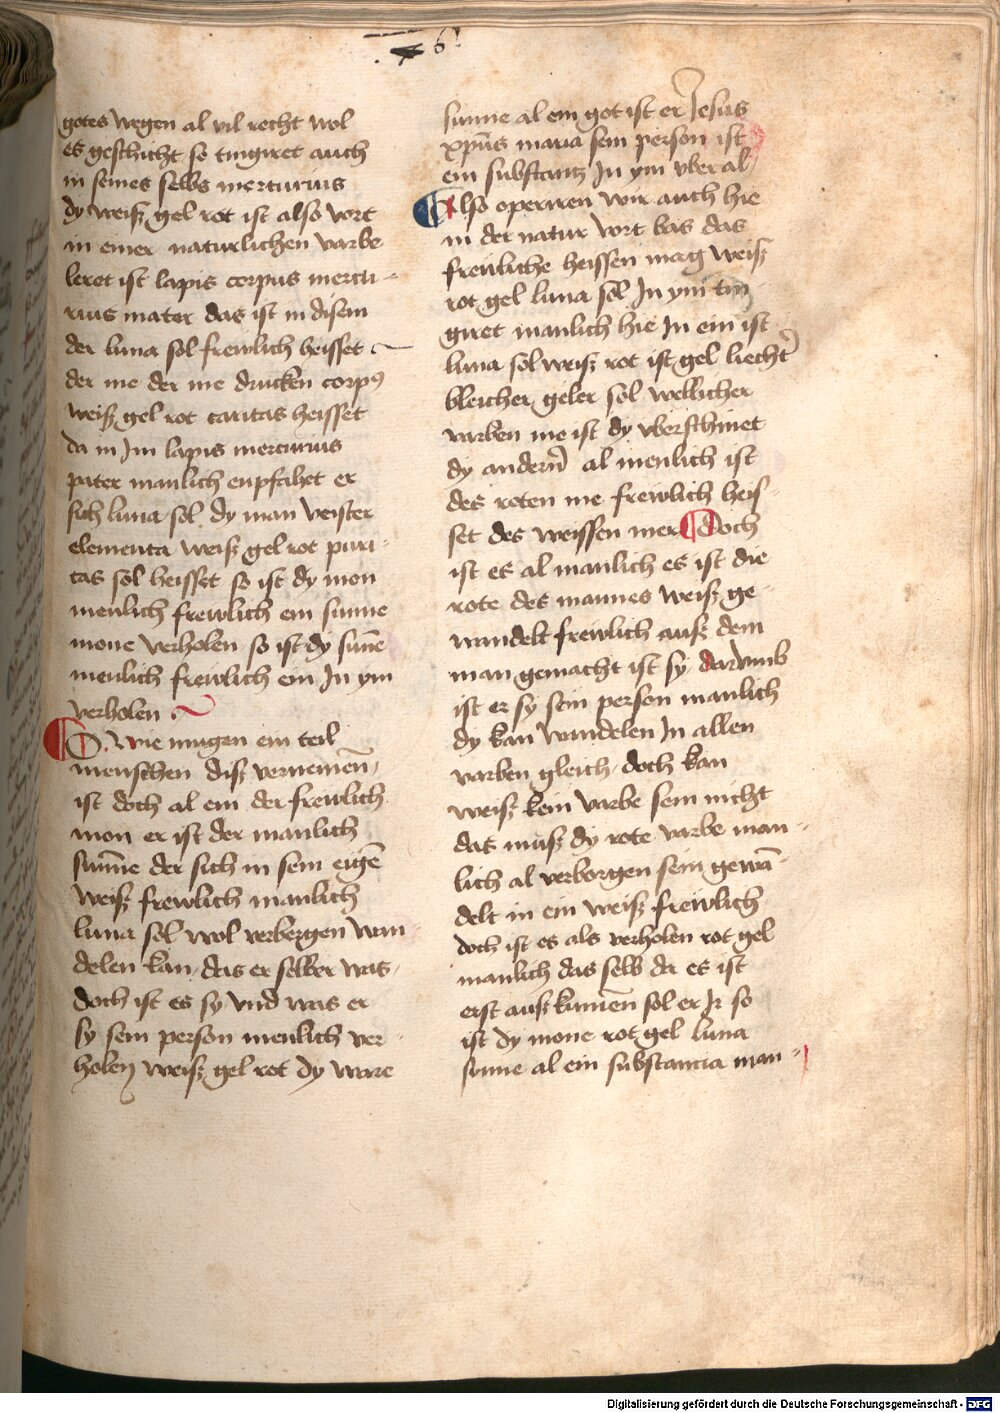 61
gotes wegen al vil recht wol
es geschicht so tingiret auch
in seines selbs mercurius
dy weiß gel rot ist also vort
in einer naturlichen varbe
leret ist lapis corpus mercu-
rius mater das ist in disem
der luna sol frewlich heisset
der me der me drucken corpꝰ
weiß gel rot caritas heisset
da in Im lapis mercurius
pater manlich enpfahet er
sich luna sol dy man veister
elementa weiß gel rot puri-
tas sol heisset so ist dy mon
menlich frewlich ein sunne
mone verholen so ist dy sūne
menlich frewlich ein In ym
verholen
Wie mugen ein teil
menschen diß vernemen̄
ist doch al ein der frewlich
mon er ist der manlich
sun̄ne der sich in sein eigē
weiß frewlich manlich
luna sol wol verbergen wan
delen kan das er selber was
doch ist es sy vnd was er
sy sein person menlich ver-
holen weiß gel rot dy ware
sunne al ein got ist er Jesus
xpūs maria sein person ist
ein substantz In ym vber al
Also operiren wir auch hie
in der natur vort bas das
frewliche heissen mag weiß
rot gel luna sol In ym tin
giret manlich hie In ein ist
luna sol weiß rot ist gel liecht͛
bleicher geler sol wellicher
varben me ist dy vberschinet
dy andern̄ al menlich ist
des roten me frewlich heis-
set des weissen mer Doch
ist es al manlich es ist die
rote des mannes weiß ge-
wandelt frewlich auß dem
man gemacht ist sy darvmb
ist er sy sein person manlich
dy kan wandelen In allen
varben gleich doch kan
weiß kein varbe sein nicht
das muß dy rote varbe man-
lich al verborgen sein gewā-
delt in ein weiß frewlich
doch ist es als verholen rot gel
manlich das selb da es ist
erst auß kumen̄ sol er Ir so
ist dy mone rot gel luna
sunne al ein substancia man-
Digitalisierung gefördert durch die Deutsche Forschungsgemeinschaft - DFG